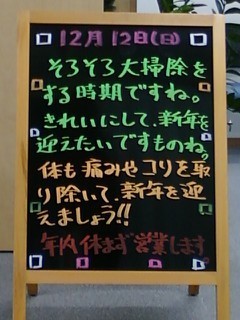 12月12日(日)
そろそろ大掃除を
する時期ですね。
きれいにして、新年を
迎えたいですものね。
体も痛みやコリを取
り除いて、新年を迎
えましょう!!
年内休まず営業します。